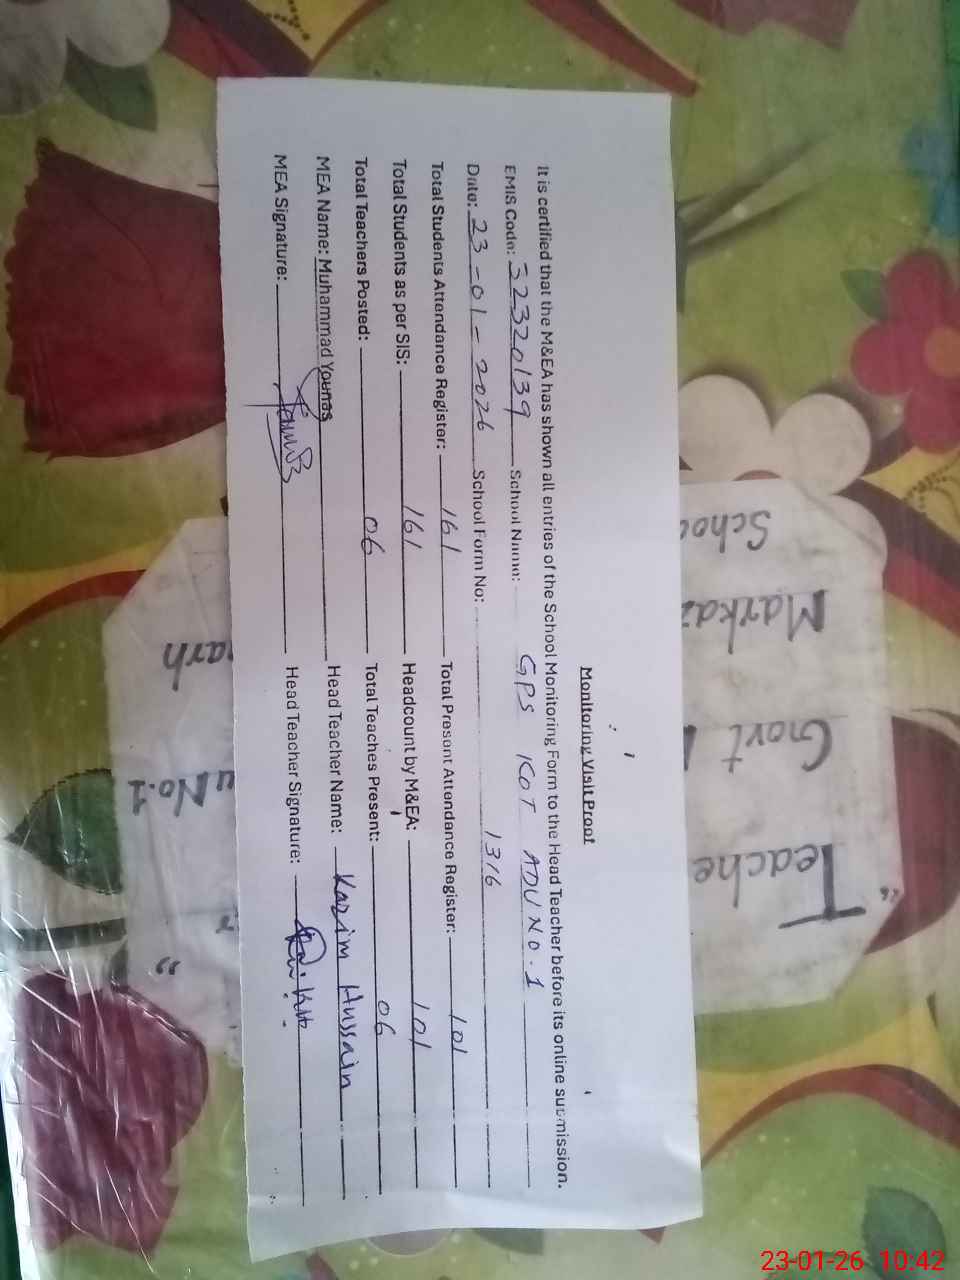 Monitoring Visit Proof
It is certified that the M&EA has shown all entries of the School Monitoring Form to the Head Teacher before its online submission.
EMIS Code: 32320139 School Name: GPS KOT ADU NO.1
Date: 23-01-2026 School Form No: 1316
Total Students Attendance Register: 161 Total Present Attendance Register: 101
Total Students as per SIS: 161 Headcount by M&EA: 101
Total Teachers Posted: 06 Total Teaches Present: 06
MEA Name: Muhammad Younas Head Teacher Name: Kazim Hussain
MEA Signature: Head Teacher Signature:
Teache
Markaz
Schoo
arh
uNo.1
23-01-26 10:42